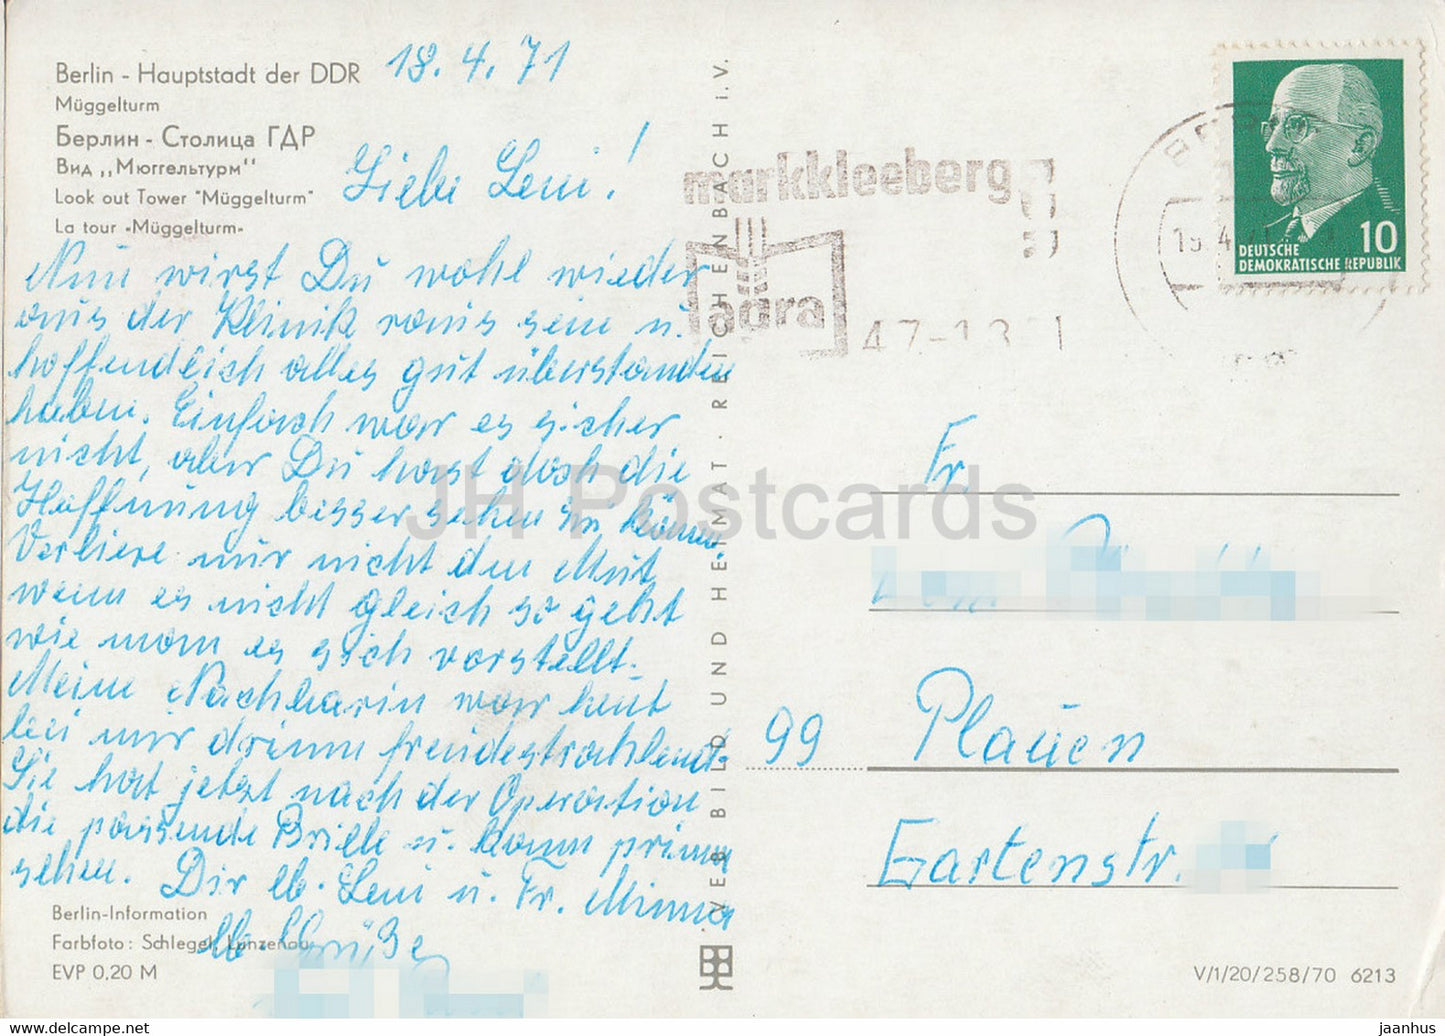 Berlin - Hauptstadt der DDR
Müggelturm
Берлин - Столица ГДР
Вид „Мюггельтурм"
Look out Tower "Müggelturm"
La tour «Müggelturm»
18.4.71
Liebe Leni!
Nun wirst Du wohl wieder
aus der Klinik raus sein u.
hoffendlich alles gut überstanden
haben. Einfach war es sicher
nicht, aber Du hast doch die
Hoffnung besser sehen zu können.
Verliere nur nicht den Mut
wenn es nicht gleich so geht
wie man es sich vorstellt.
Meine Nachbarin war heut
bei mir drinn freudestrahlend.
Sie hat jetzt nach der Operation
die passende Brille u. kann prima
sehen. Dir lb. Leni u. Fr. Minna
lb. Grüße
Berlin-Information
Farbfoto: Schlegel, Lunzenau
EVP 0,20 M
VEB BILD UND HEIMAT · REICHENBACH i. V.
markkleeberg
agra
DEUTSCHE
DEMOKRATISCHE REPUBLIK
10
Fr.
99 Plauen
Gartenstr.
V/1/20/258/70 6213
JH Postcards
www.jhpostcards.com
jaanhus